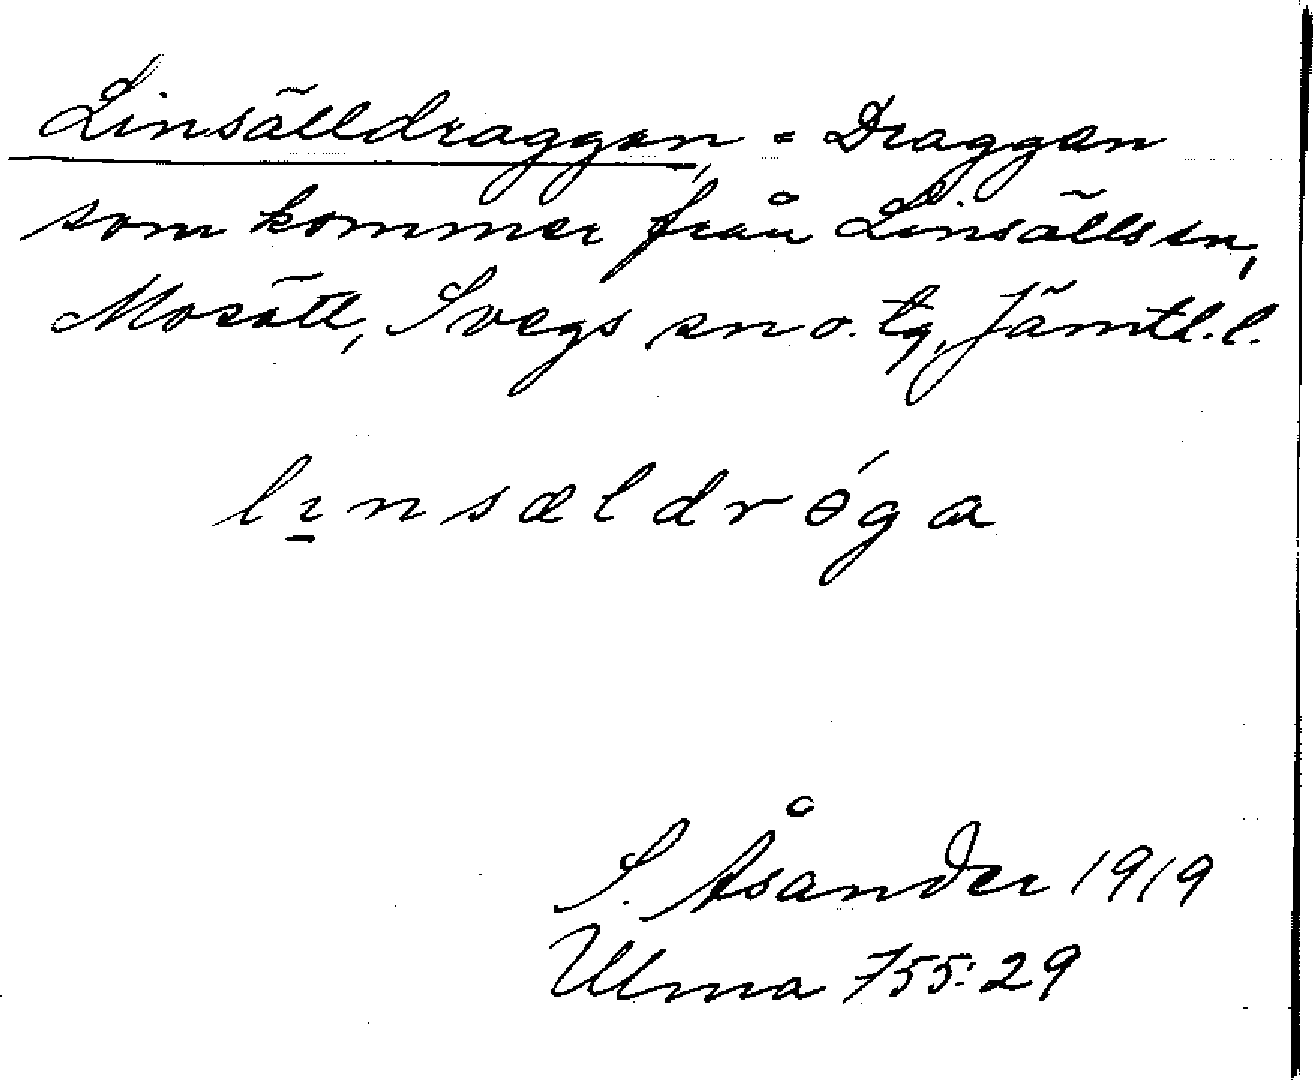 Linsälldraggan, = Draggan
som kommer från Linsälls sn,
Mosätt, Svegs sn o. tg, Jämtl. l.
lınsældrǿga
S. Åsander 1919
Ulma 755:29